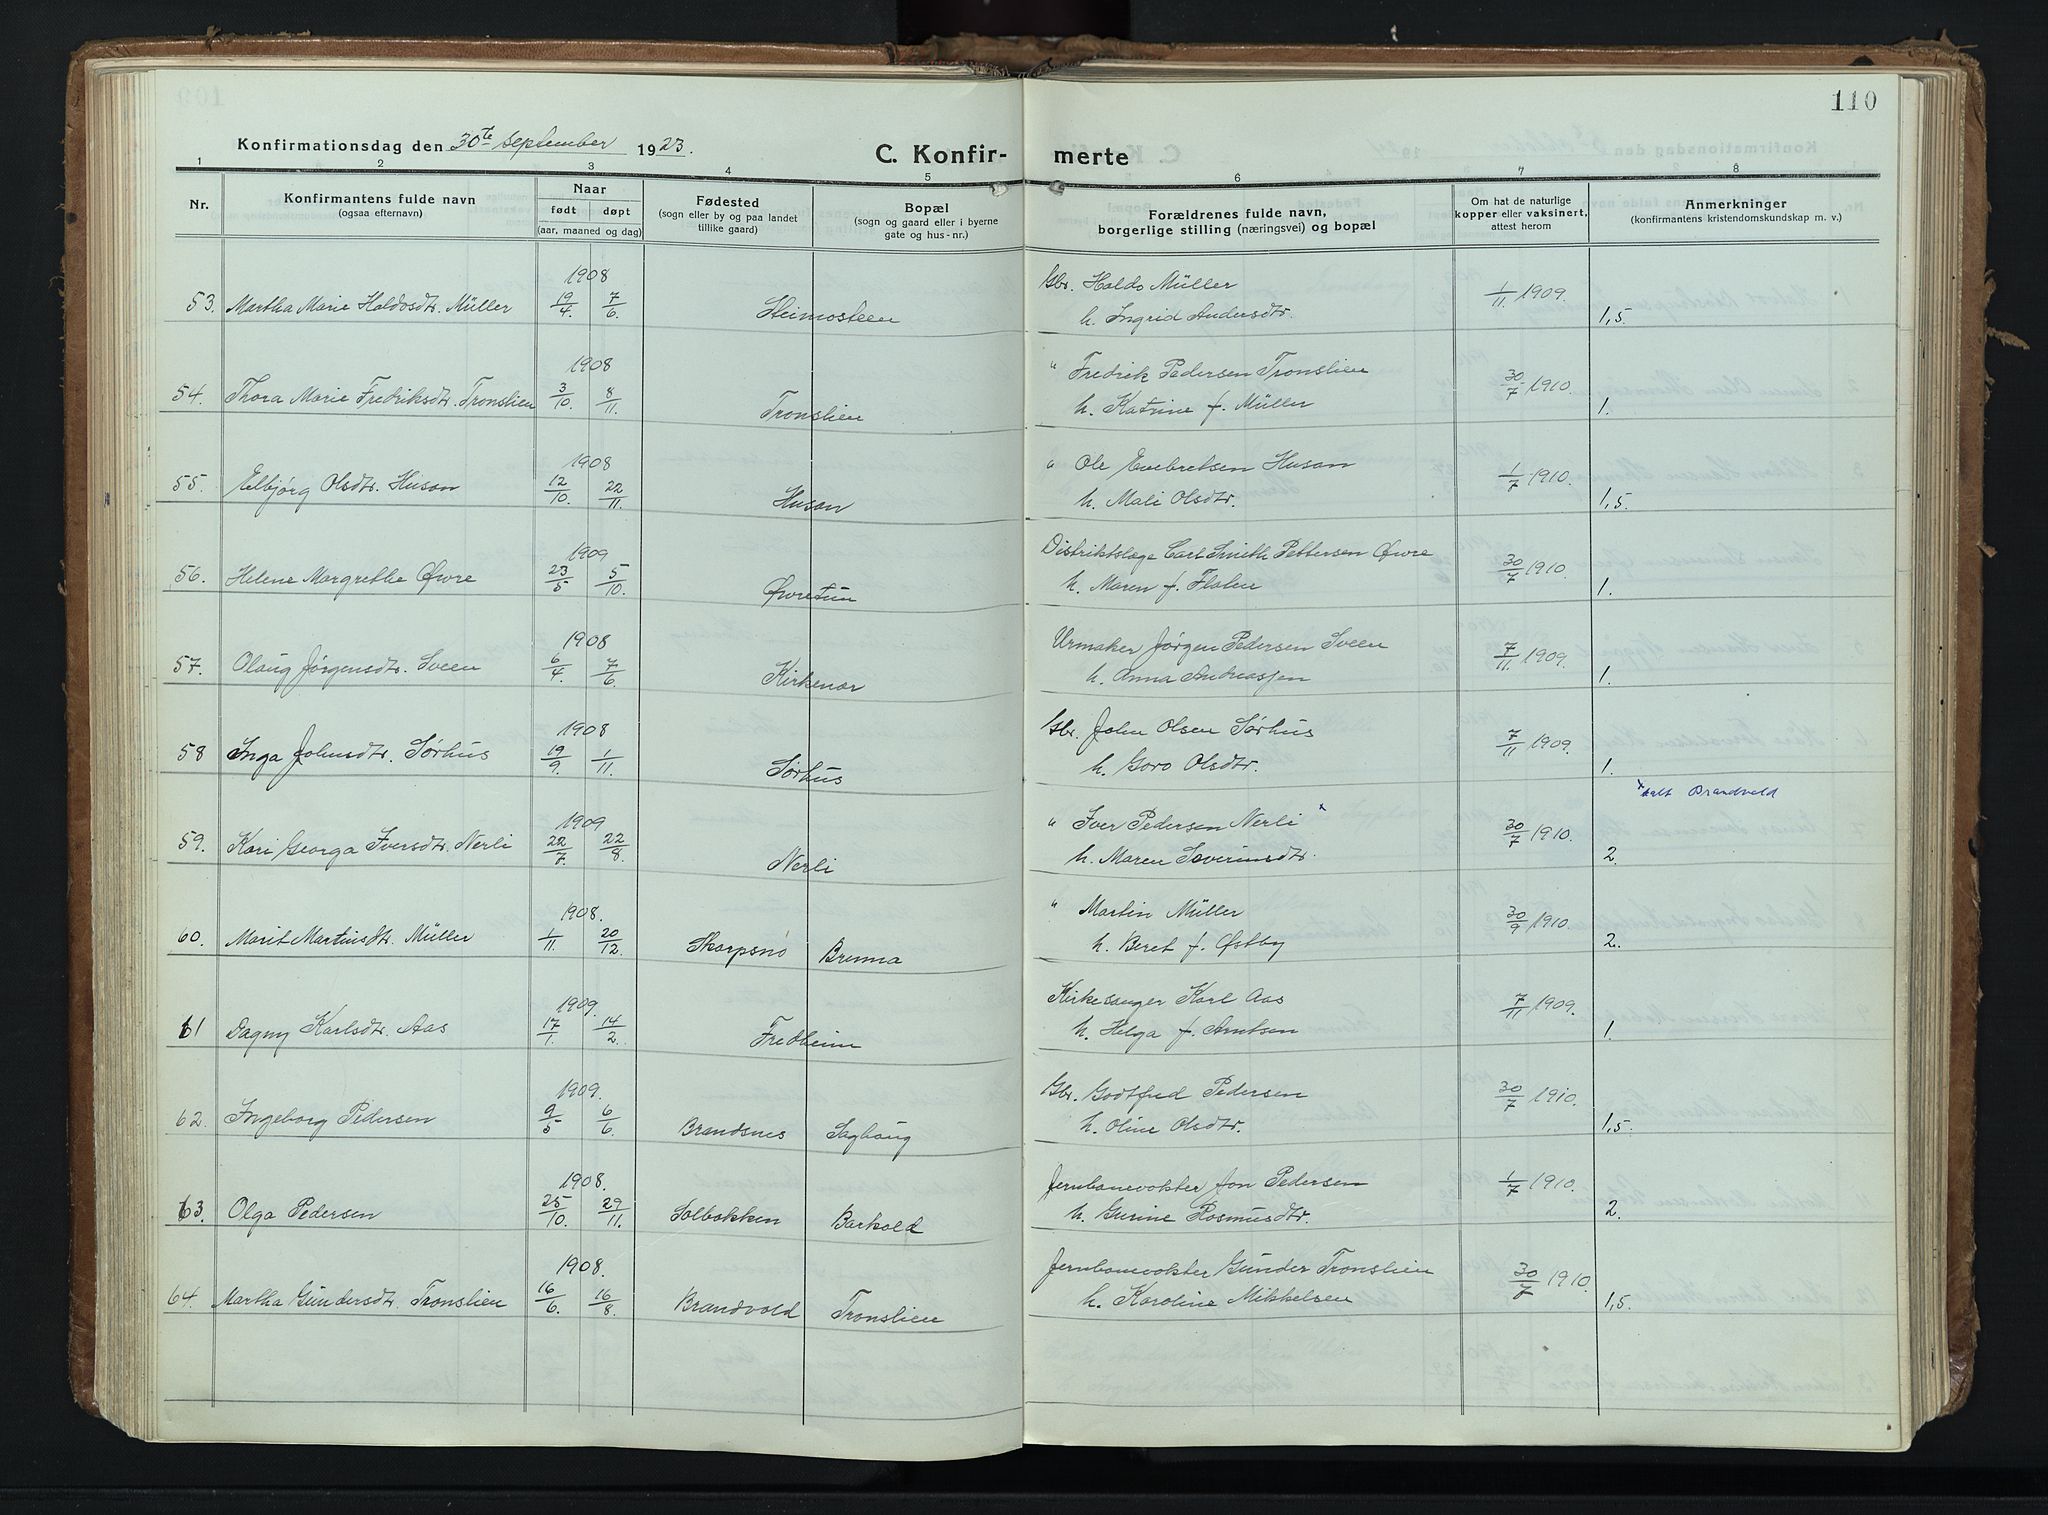 110
Konfirmationsdag den 30te september 1923.
C. Konfir- merte
1 2 3 4 5 6 7 8
Nr.
Konfirmantens fulde navn
(ogsaa efternavn)
Naar
født døpt
(aar, maaned og dag)
Fødested
(sogn eller by og paa landet
tillike gaard)
Bopæl
(sogn og gaard eller i byerne
gate og hus-nr.)
Forældrenes fulde navn,
borgerlige stilling (næringsvei) og bopæl
Om hat de naturlige
kopper eller vaksinert,
attest herom
Anmerkninger
(konfirmantens kristendomskundskap m. v.)
1908 Gbr. Haldo Müller
53. Martha Marie Haldosdtr. Müller 19/4 7/6 Steimosteen h. Ingrid Andersdtr. 1/11 1909. 1,5.
1908 " Fredrik Pedersen Tronslien
54. Thora Marie Fredriksdtr. Tronslien 3/10. 8/11. Tronslien h. Katrine f. Müller 30/7 1910. 1.
1908 " Ole Evebretsen Husan
55. Elbjørg Olsdtr. Husan 12/10. 22/11. Husan h. Mali Olsdtr. 1/7 1910. 1,5.
1909 Distriktslæge Carl Smith Pettersen Øvre
56. Helene Margrethe Øvre 23/5 5/10. Øvretun h. Maren f. Floten 30/7 1910. 1.
1908 Urmaker Jørgen Pedersen Sveen
57. Olaug Jørgensdtr. Sveen 6/4. 7/6. Kirkenær h. Anna Andreassen 7/11. 1909. 1.
1908 Gbr. John Olsen Sørhus
58 Inga Johnsdtr. Sørhus 19/9. 1/11. Sørhus h. Goro Olsdtr. 7/11 1909. 1.
x kalt Brandvold
1909 " Iver Pedersen Nerli x
59. Kari Georga Iversdtr. Nerli 22/7. 22/8. Nerli h. Maren Severinsdtr. 30/7 1910. 2.
1908. " Martin Müller
60. Marit Martinsdtr. Müller 1/11. 20/12. Skarpsno Brenna h. Beret f. Østby 30/9 1910. 2.
1909. Kirkesanger Karl Aas
61 Dagny Karlsdtr. Aas 17/1. 14/2. Fredheim h. Helga f. Arntsen 7/11 1909. 1.
1909. Gbr. Godtfred Pedersen
62. Ingeborg Pedersen 9/5 6/6. Brandsnes Saghaug h. Oline Olsdtr. 30/7 1910. 1,5.
1908. Jernbanevokter Jon Pedersen
63. Olga Pedersen 25/10. 29/11. Solbakken Barkald h. Gurine Rasmusdtr. 1/7 1910. 2.
1908. Jernbanevokter Gunder Tronslien
64. Martha Gundersdtr. Tronslien 16/6. 16/8. Brandvold Tronslien h. Karoline Mikkelsen 30/7 1910. 1,5.